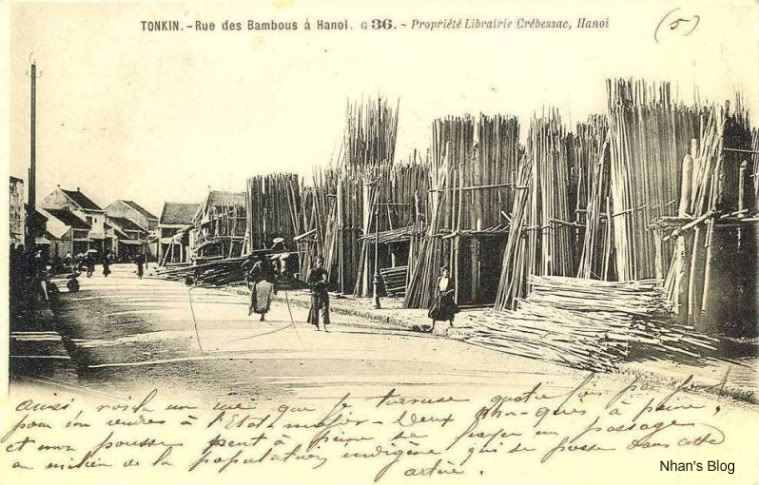 TONKIN. - Rue des Bambous à Hanoi. G 36. - Propriété Librairie Crébessac, Hanoi
(5)
ainsi voilà un rue que je traverse quatre fois par jour
pour me rendre à l'Etat-major - Deux à peine,
et mon pousse peut à peine se frayer un passage
au milieu de la population indigène qui se presse dans cette
artère.
Nhan's Blog